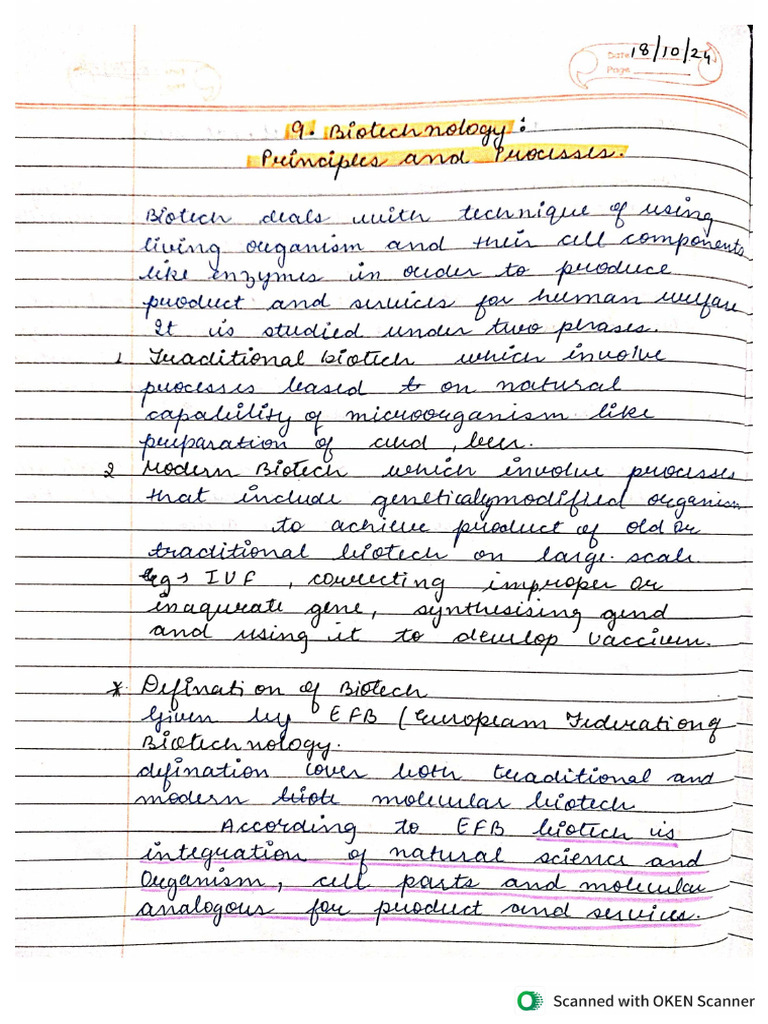 Date 18/10/24
Page
9. Biotechnology:
Principles and Processes.
Biotech deals with technique of using
living organism and their cell components
like enzymes in order to produce
product and services for human welfare
It is studied under two phrases.
1 Traditional biotech which involve
processes based to on natural
capability of microorganism like
preparation of curd, beer.
2 Modern Biotech which involve processes
that include geneticalymodified organism
to achieve product of old or
traditional biotech on large scale
eg → IVF, correcting improper or
inaqurate gene, synthesising gend
and using it to develop vacciven.
* Defination of Biotech
Given by EFB (European Federation of
Biotechnology.
defination cover both traditional and
modern biote molecular biotech
According to EFB biotech is
integration of natural science and
Organism, cell parts and molecular
analogous for product and services.
Scanned with OKEN Scanner